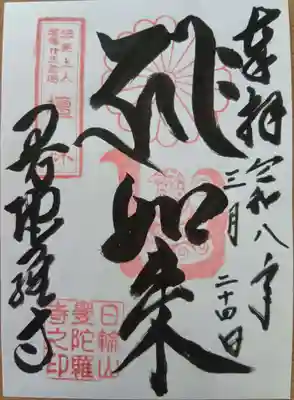 奉拝 令和八年
三月二十四日
如来
曼陀羅寺
法然上人
日輪山
曼陀羅
寺之印